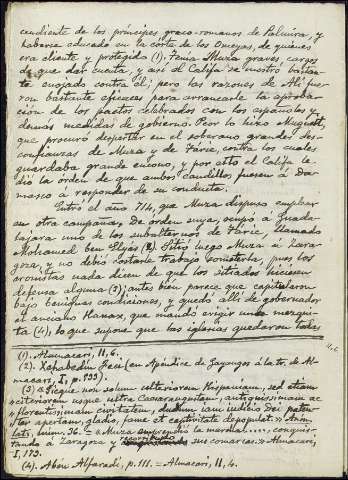 cendiente de los príncipes greco-romanos de Palmira, y
haberse educado en la córte de los Omeyas, de quienes
era cliente y protegido (1). Tenia Muza graves cargos
de que dar cuenta, y así el Califa se mostró bastan-
te enojado contra él; pero las razones de Alí fue-
ron bastante eficaces para arrancarle la aproba-
ción de los pactos celebrados con los españoles y
demas medidas de gobierno. Peor lo hizo Mugueit,
que procuró despertar en el soberano grandes des-
confianzas de Muza y de Táric, contra los cuales
guardaba grande encono, y por esto el Califa le
dió la orden de que ambos caudillos fuesen á Da-
masco á responder de su conducta.
Entró el año 714, que Muza dispuso emplear
en otra campaña. De orden suya, ocupó á Guada-
lajara uno de los subalternos de Táric, llamado
Mohamed ben Elyás (2). Sitió luego Muza á Zara-
goza, y no debió costarle trabajo tomarla, pues los
cronistas nada dicen de que los sitiados hiciesen
defensa alguna (3); antes bien parece que capitularon
bajo buenas condiciones, y quedó allí de gobernador
el anciano Hanax, que mandó erigir una mezqui-
ta (4), lo que supone que las iglesias quedaron todas
(1). Almacari, II, 6.
(2). Xahabeddin Fesi (en Apéndice de Gayangos á la tr. de Al-
macari, I, p.
(3) «Sicque non solum ulteriorem Hispaniam, sed etiam
»citeriorem usque ultra Caesaraugustam, antiquissimam ac
»florentissimam civitatem, dudum iam iudicio Dei paten-
ter apertam, gladio, fame et captivitate depopulat». Anón.
lat., núm. 36. = «Muza emprendió la marcha ..... conquis-
tando á Zaragoza y recorriendo sus comarcas.» Almacari,
I, 173.
(4). Aben Alfaradí, p. 111. = Almacari, II, 4.